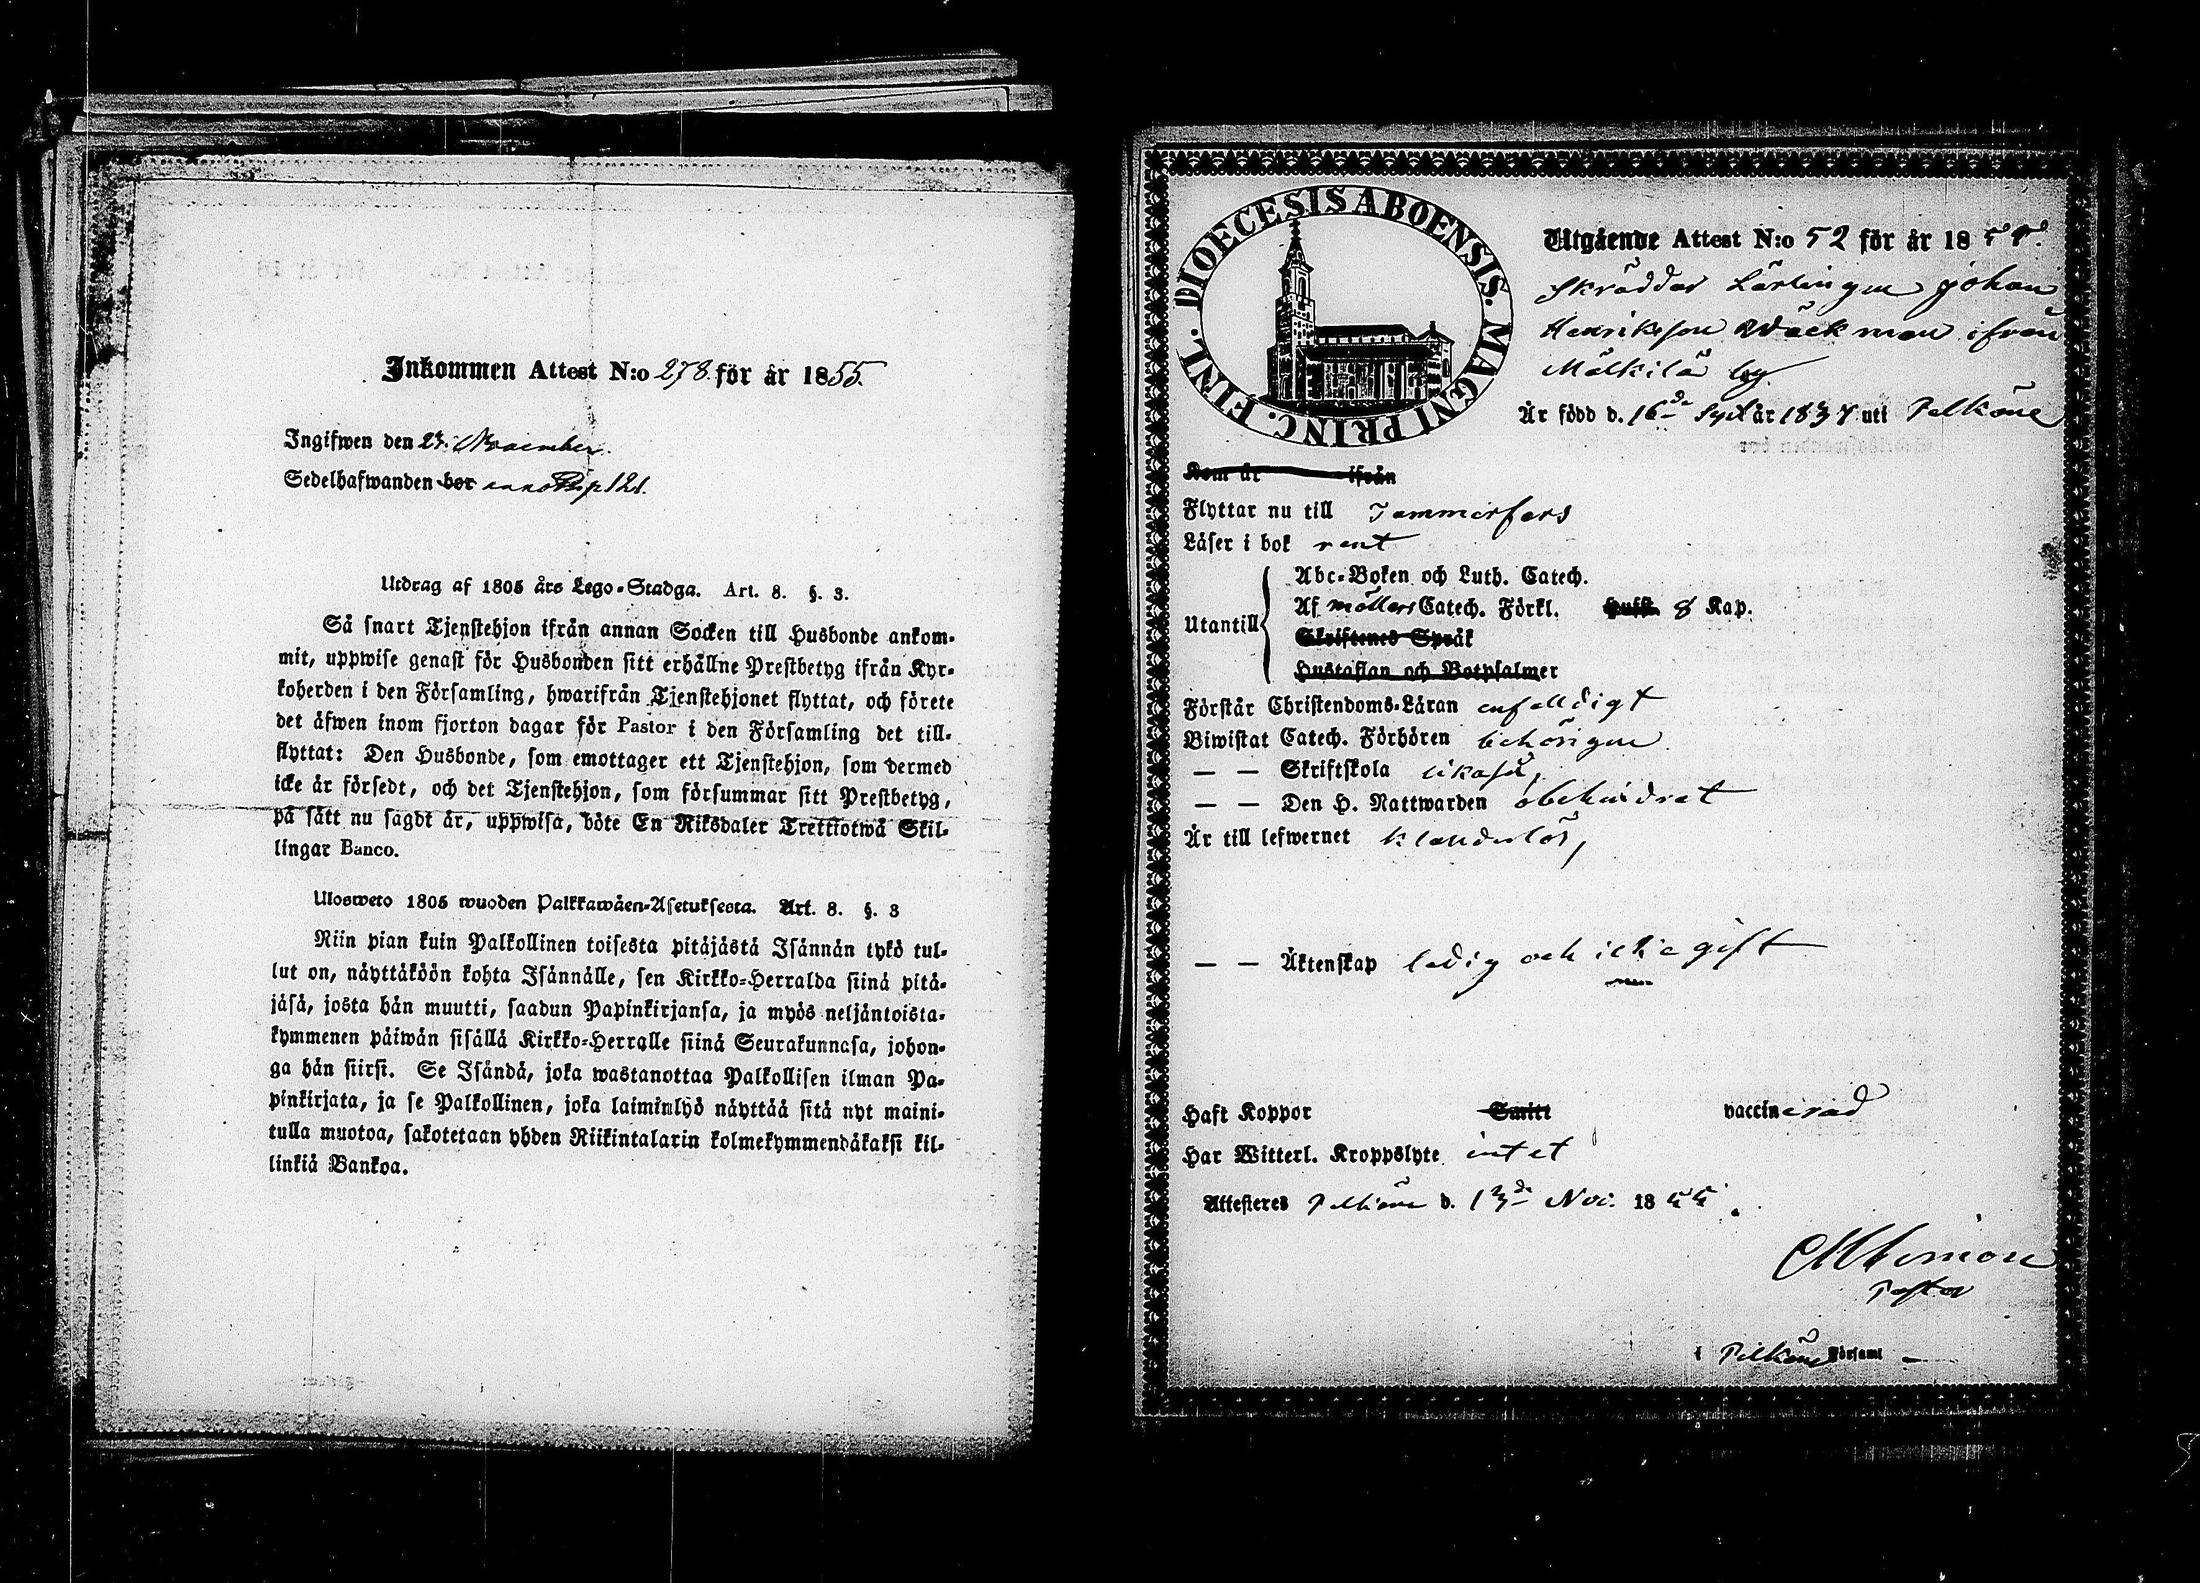 Inkommen Attest N:o 278. för år 1855.
Ingifwen den 23. November.
Sedelhafwanden bor annot. p. 121.
Utdrag af 1805 års Lego-Stadga. Art. 8. §. 3.
Så snart Tjenstehjon ifrån annan Socken till Husbonde ankom-
mit, uppwise genast för Husbonden sitt erhållne Prestbetyg ifrån Kyr-
koherden i den Församling, hwarifrån Tjenstehjonet flyttat, och förete
det äfwen inom fjorton dagar för Pastor i den Församling det till-
flyttat: Den Husbonde, som emottager ett Tjenstehjon, som dermed
icke är försedt, och det Tjenstehjon, som försummar sitt Prestbetyg,
på sätt nu sagdt är, uppwisa, böte En Riksdaler Trettiotwå Skil-
lingar Banco.
Ulosweto 1805 wuoden Palkkawäen-Asetuksesta. Art. 8. §. 3
Niin pian kuin Palkollinen toisesta pitäjästä Isännän tykö tul-
lut on, näyttäköön kohta Isännälle, sen Kirkko-Herralda siinä pitä-
jäsä, josta hän muutti, saadun Papinkirjansa, ja myös neljäntoista-
kymmenen päiwän sisällä Kirkko-Herralle siinä Seurakunnasa, johon-
ga hän siirsi. Se Isändä, joka wastanottaa Palkollisen ilman Pa-
pinkirjata, ja se Palkollinen, joka laiminlyö näyttää sitä nyt maini-
tulla muotoa, sakotetaan yhden Riikintalarin kolmekymmendäkaksi kil-
linkiä Bankoa.
DIOECESIS ABOENSIS. MAGNI PRINC. FINL.
Utgående Attest N:o 52 för år 1855.
Skräddar Lärlingen Johan
Henriksson Wäckman ifrån
Mälkilä by.
Är född d. 16de Sept år 1837 uti Pelkäne
Kom år ifrån
Flyttar nu till Tammerfors
Läser i bok rent
Utantill
Abc-Boken och Luth. Catech.
Af Möllers Catech. Förkl. Hufst. 8 Kap.
Skriftenes Språk
Hustaflan och Botpsalmer
Förstår Christendoms-Läran enfalldigt
Biwistat Catech. Förhören behörigen
— — Skriftskola likaså,
— — Den H. Nattwarden obehindrat
Är till lefwernet klanderlös,
— — Äktenskap ledig och icke gift
Haft Koppor Smitt vaccinerad
Har Witterl. Kroppslyte intet
Attesteras Pelkäne d. 13de Nov. 1855.
Pastor
i Pelkäne Församl